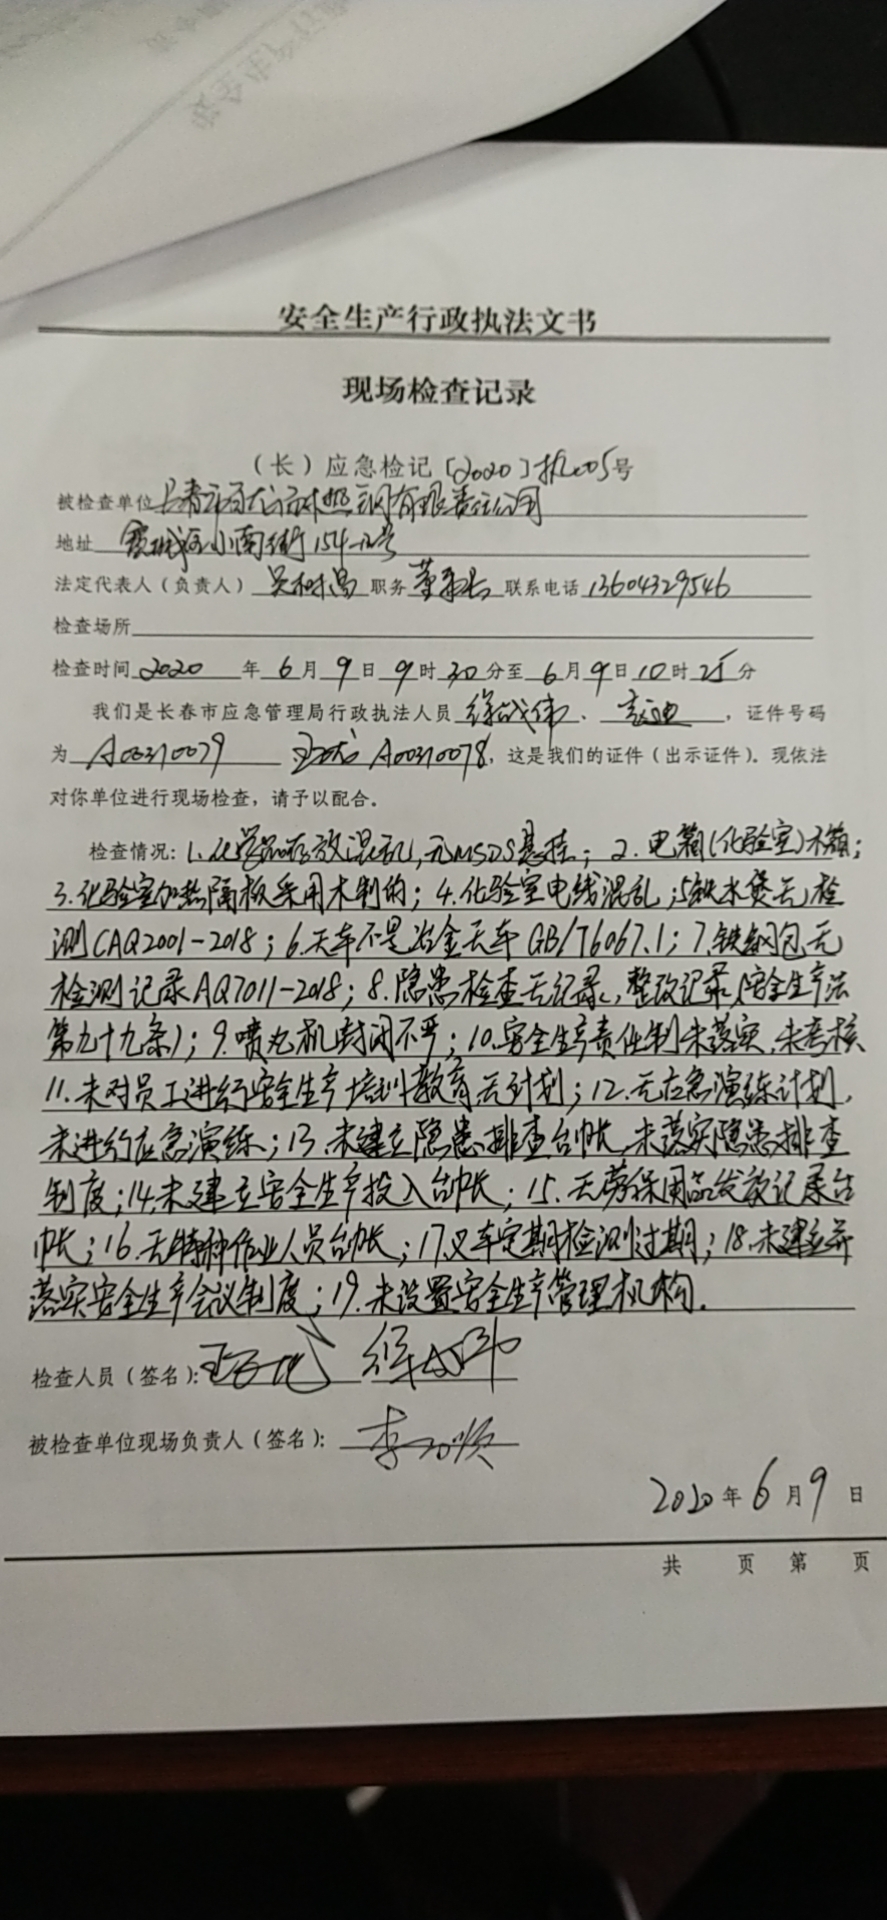 安全生产行政执法文书
现场检查记录
（长）应急检记〔2020〕执005号
被检查单位 长春市 有限责任公司
地址 宽城区小南街154-12号
法定代表人（负责人） 职务 董事长 联系电话 13604329546
检查场所
检查时间 2020 年 6 月 9 日 9 时 30 分至 6 月 9 日 10 时 25 分
我们是长春市应急管理局行政执法人员 徐成伟 、 ，证件号码
为 A00310079 A00310078，这是我们的证件（出示证件）。现依法
对你单位进行现场检查，请予以配合。
检查情况：1.化学品存放混乱,无MSDS悬挂；2.电箱(化验室)木箱；
3.化验室加热隔板采用木制的；4.化验室电线混乱；5铁水煲无检
测CAQ2001-2018；6.天车不是冶金天车GB/T6067.1；7.铁钢包无
检测记录AQ7011-2018；8.隐患检查无记录,整改记录(安全生产法
第九十九条)；9.喷丸机封闭不严；10.安全生产责任制未落实,未考核
11.未对员工进行安全生产培训教育无计划；12.无应急演练计划,
未进行应急演练；13.未建立隐患排查台帐,未落实隐患排查
制度；14.未建立安全生产投入台帐；15.无劳保用品发放记录台
帐；16.无特种作业人员台帐；17.叉车定期检测过期；18.未建立并
落实安全生产会议制度；19.未设置安全生产管理机构.
检查人员（签名）： 徐成伟
被检查单位现场负责人（签名）：
2020 年 6 月 9 日
共 页 第 页